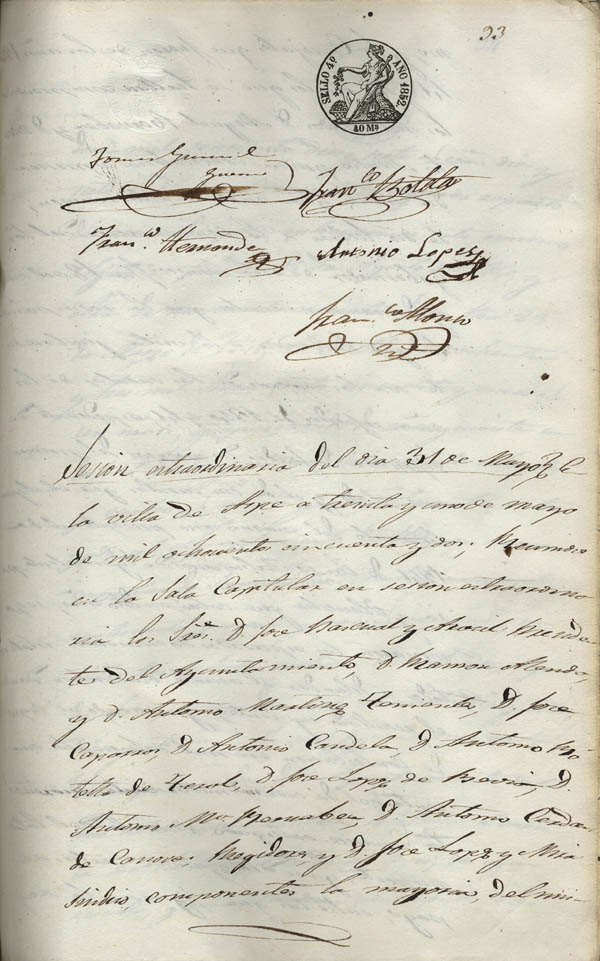 93
SELLO 4º AÑO 1852
40 Ms
Tomas
Franco Botella
Franco Hernande
Antonio Lopez
Franco Alonso
Sesion extraordinaria del dia 31 de Mayo En
la villa de Aspe a treinta y uno de mayo
de mil ochocientos cincuenta y dos; Reunidos
en la Sala Capitular en sesion extraordina
ria los Sres. D. Jose Pascual y Preside
te del Ayuntamiento, D. Ramon Alenda,
y D. Antonio Martinez Teniente, D. Jose
D. Antonio Candela, D. Antonio Bo
tella de Terol, D. Jose Lopez de D.
Antonio Ma Bernabeu, D. Antonio
de Canovas; Regidores, y D. Jose Lopez y Mira
Sindico, componentes la mayoria, del mi-